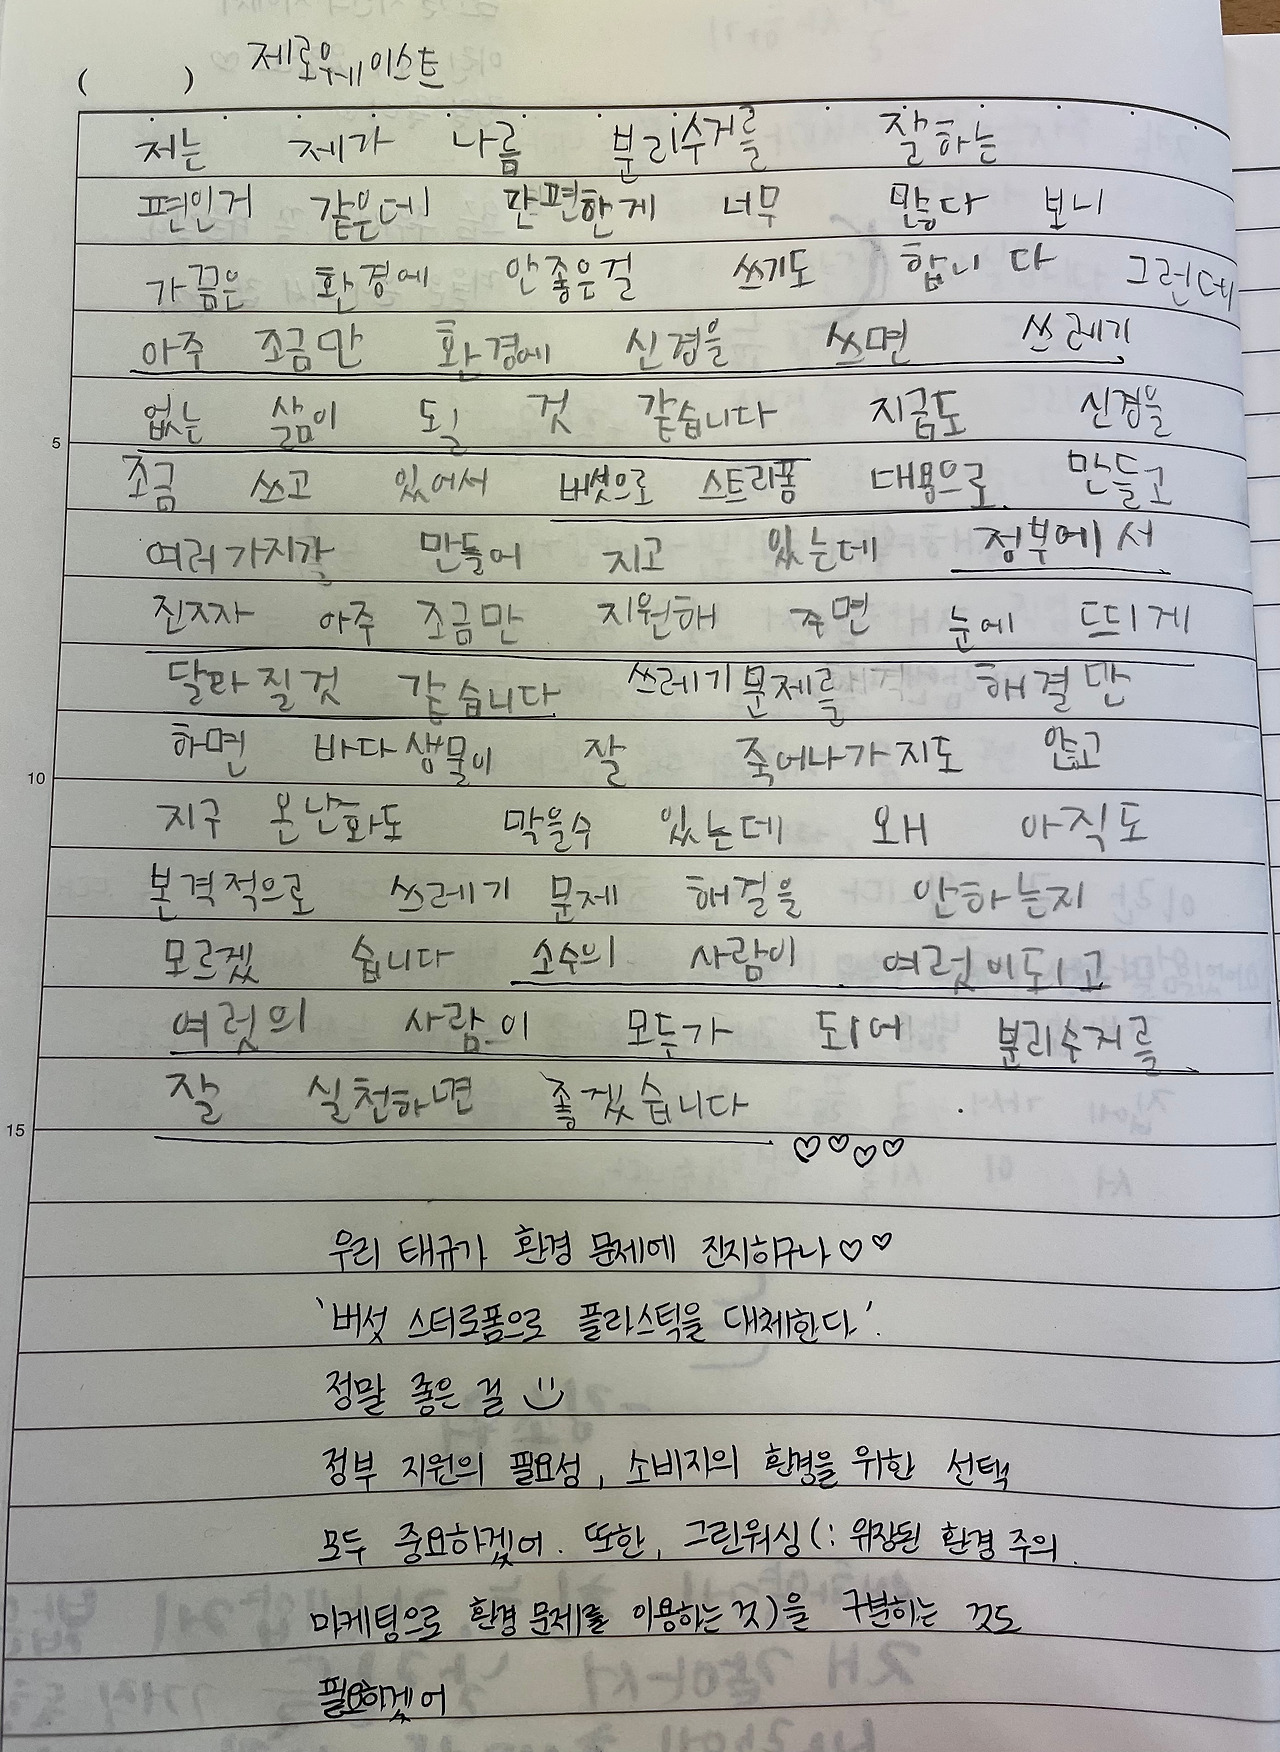 ( ) 제로웨이스트
저는 제가 나름 분리수거를 잘하는
편인거 같은데 간편한게 너무 많다 보니
가끔은 환경에 안좋은걸 쓰기도 합니다 그런데
아주 조금만 환경에 신경을 쓰면 쓰레기
없는 삶이 될 것 같습니다 지금도 신경을
조금 쓰고 있어서 버섯으로 스트리폼 대용으로 만들고
여러가지가 만들어 지고 있는데 정부에서
진짜 아주 조금만 지원해 주면 눈에 뜨게
달라 질것 같습니다 쓰레기 문제를 해결만
하면 바다생물이 잘 죽어나가지도 않고
지구 온난화도 막을수 있는데 왜 아직도
5
본격적으로 쓰레기 문제 해결을 안하는지
모르겠 습니다 소수의 사람이 여럿이되고
10
여럿의 사람이 모두가 되어 분리수거를
잘 실천하면 좋겠습니다.
15
♡♡♡♡
우리 태규가 환경 문제에 진지하구나♡♡
'버섯 스티로폼으로 플라스틱을 대체한다'.
정말 좋은 걸
정부 지원의 필요성, 소비자의 환경을 위한 선택
모두 중요하겠어. 또한, 그린워싱(: 위장된 환경 주의.
마케팅으로 환경 문제를 이용하는 것)을 구분하는 것도
필요하겠어